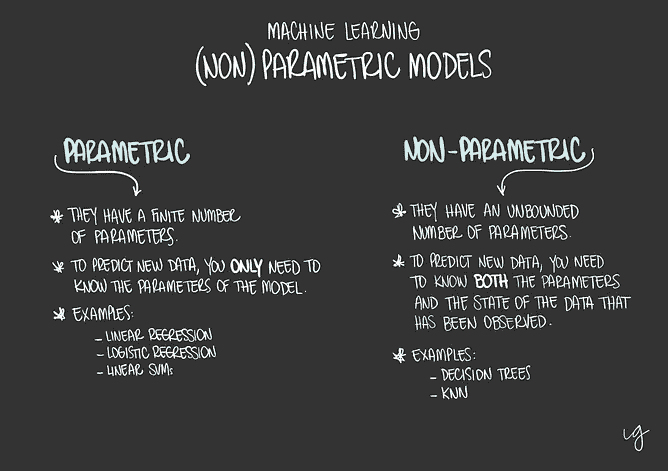 MACHINE LEARNING
(NON) PARAMETRIC MODELS
PARAMETRIC
* THEY HAVE A FINITE NUMBER
OF PARAMETERS.
* TO PREDICT NEW DATA, YOU ONLY NEED TO
KNOW THE PARAMETERS OF THE MODEL.
* EXAMPLES:
- LINEAR REGRESSION
- LOGISTIC REGRESSION
- LINEAR SVMs
NON-PARAMETRIC
* THEY HAVE AN UNBOUNDED
NUMBER OF PARAMETERS.
* TO PREDICT NEW DATA, YOU NEED
TO KNOW BOTH THE PARAMETERS
AND THE STATE OF THE DATA THAT
HAS BEEN OBSERVED.
* EXAMPLES:
- DECISION TREES
- KNN